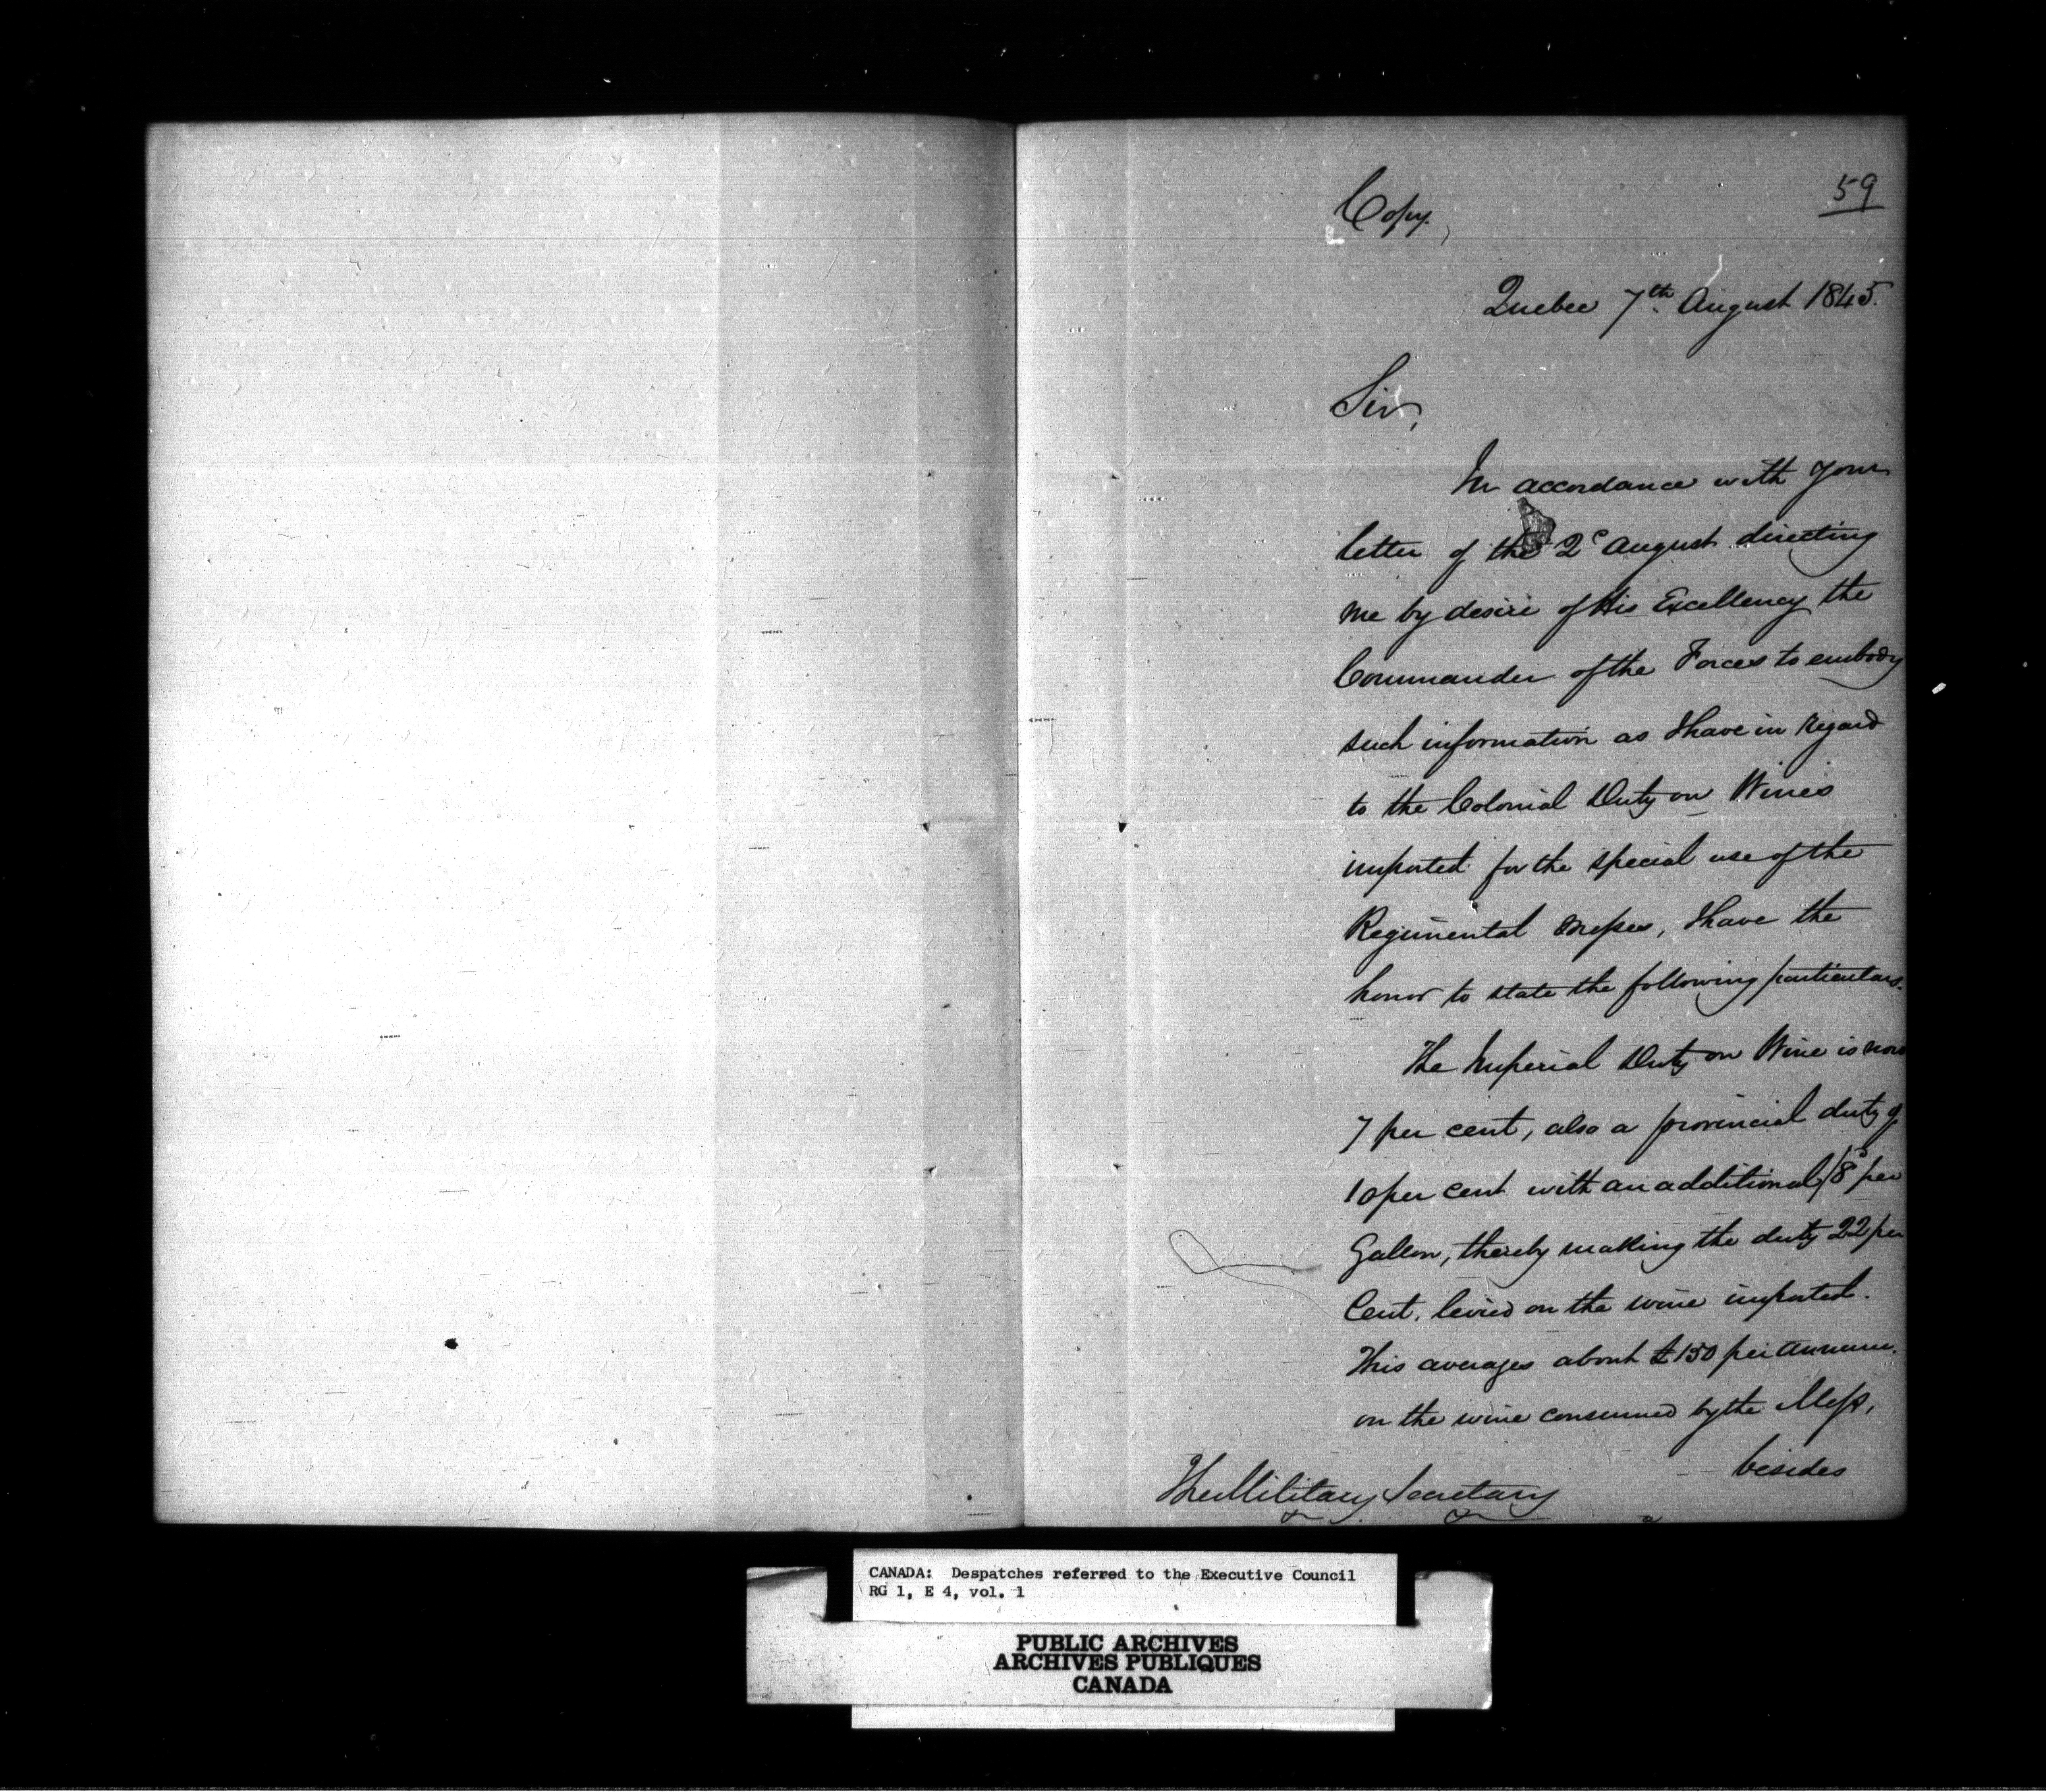 59
Copy.
Quebec 7th. August 1845.
Sir,
In accordance with your
letter of the 2d August directing
me by desire of His Excellency the
Commander of the Forces to embody
such information as I have in regard
to the Colonial Duty on Wines
imported for the special use of the
Regimental Messes, I have the
honor to state the following particulars.
The Imperial Duty on Wine is now
7 per cent, also a provincial duty of
10 per cent with an additional /8d per
Gallon, thereby making the duty 22 per
Cent. levied on the wine imported.
This averages about £150 per annum.
on the wine consumed by the Mess,
besides
The Military Secretary
CANADA: Despatches referred to the Executive Council
RG 1, E 4, vol. 1
PUBLIC ARCHIVES
ARCHIVES PUBLIQUES
CANADA